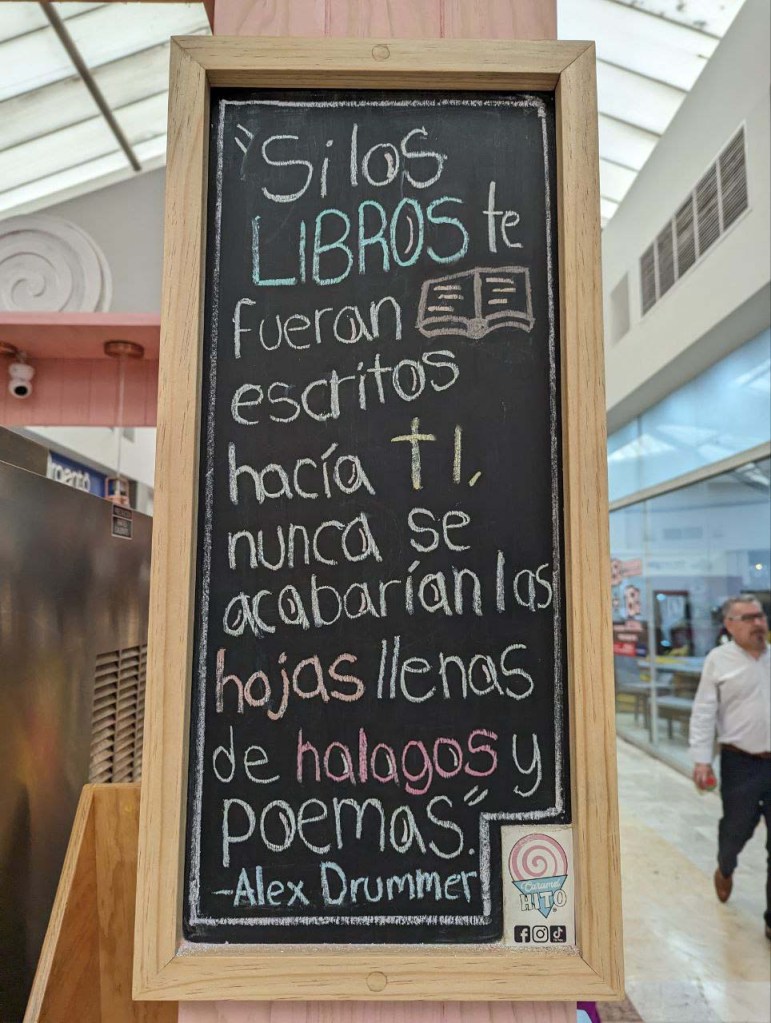 "Si los
LIBROS te
fueran
escritos
hacía TI,
nunca se
acabarían las
hojas llenas
de halagos y
poemas."
-Alex Drummer
Caramel
HITO